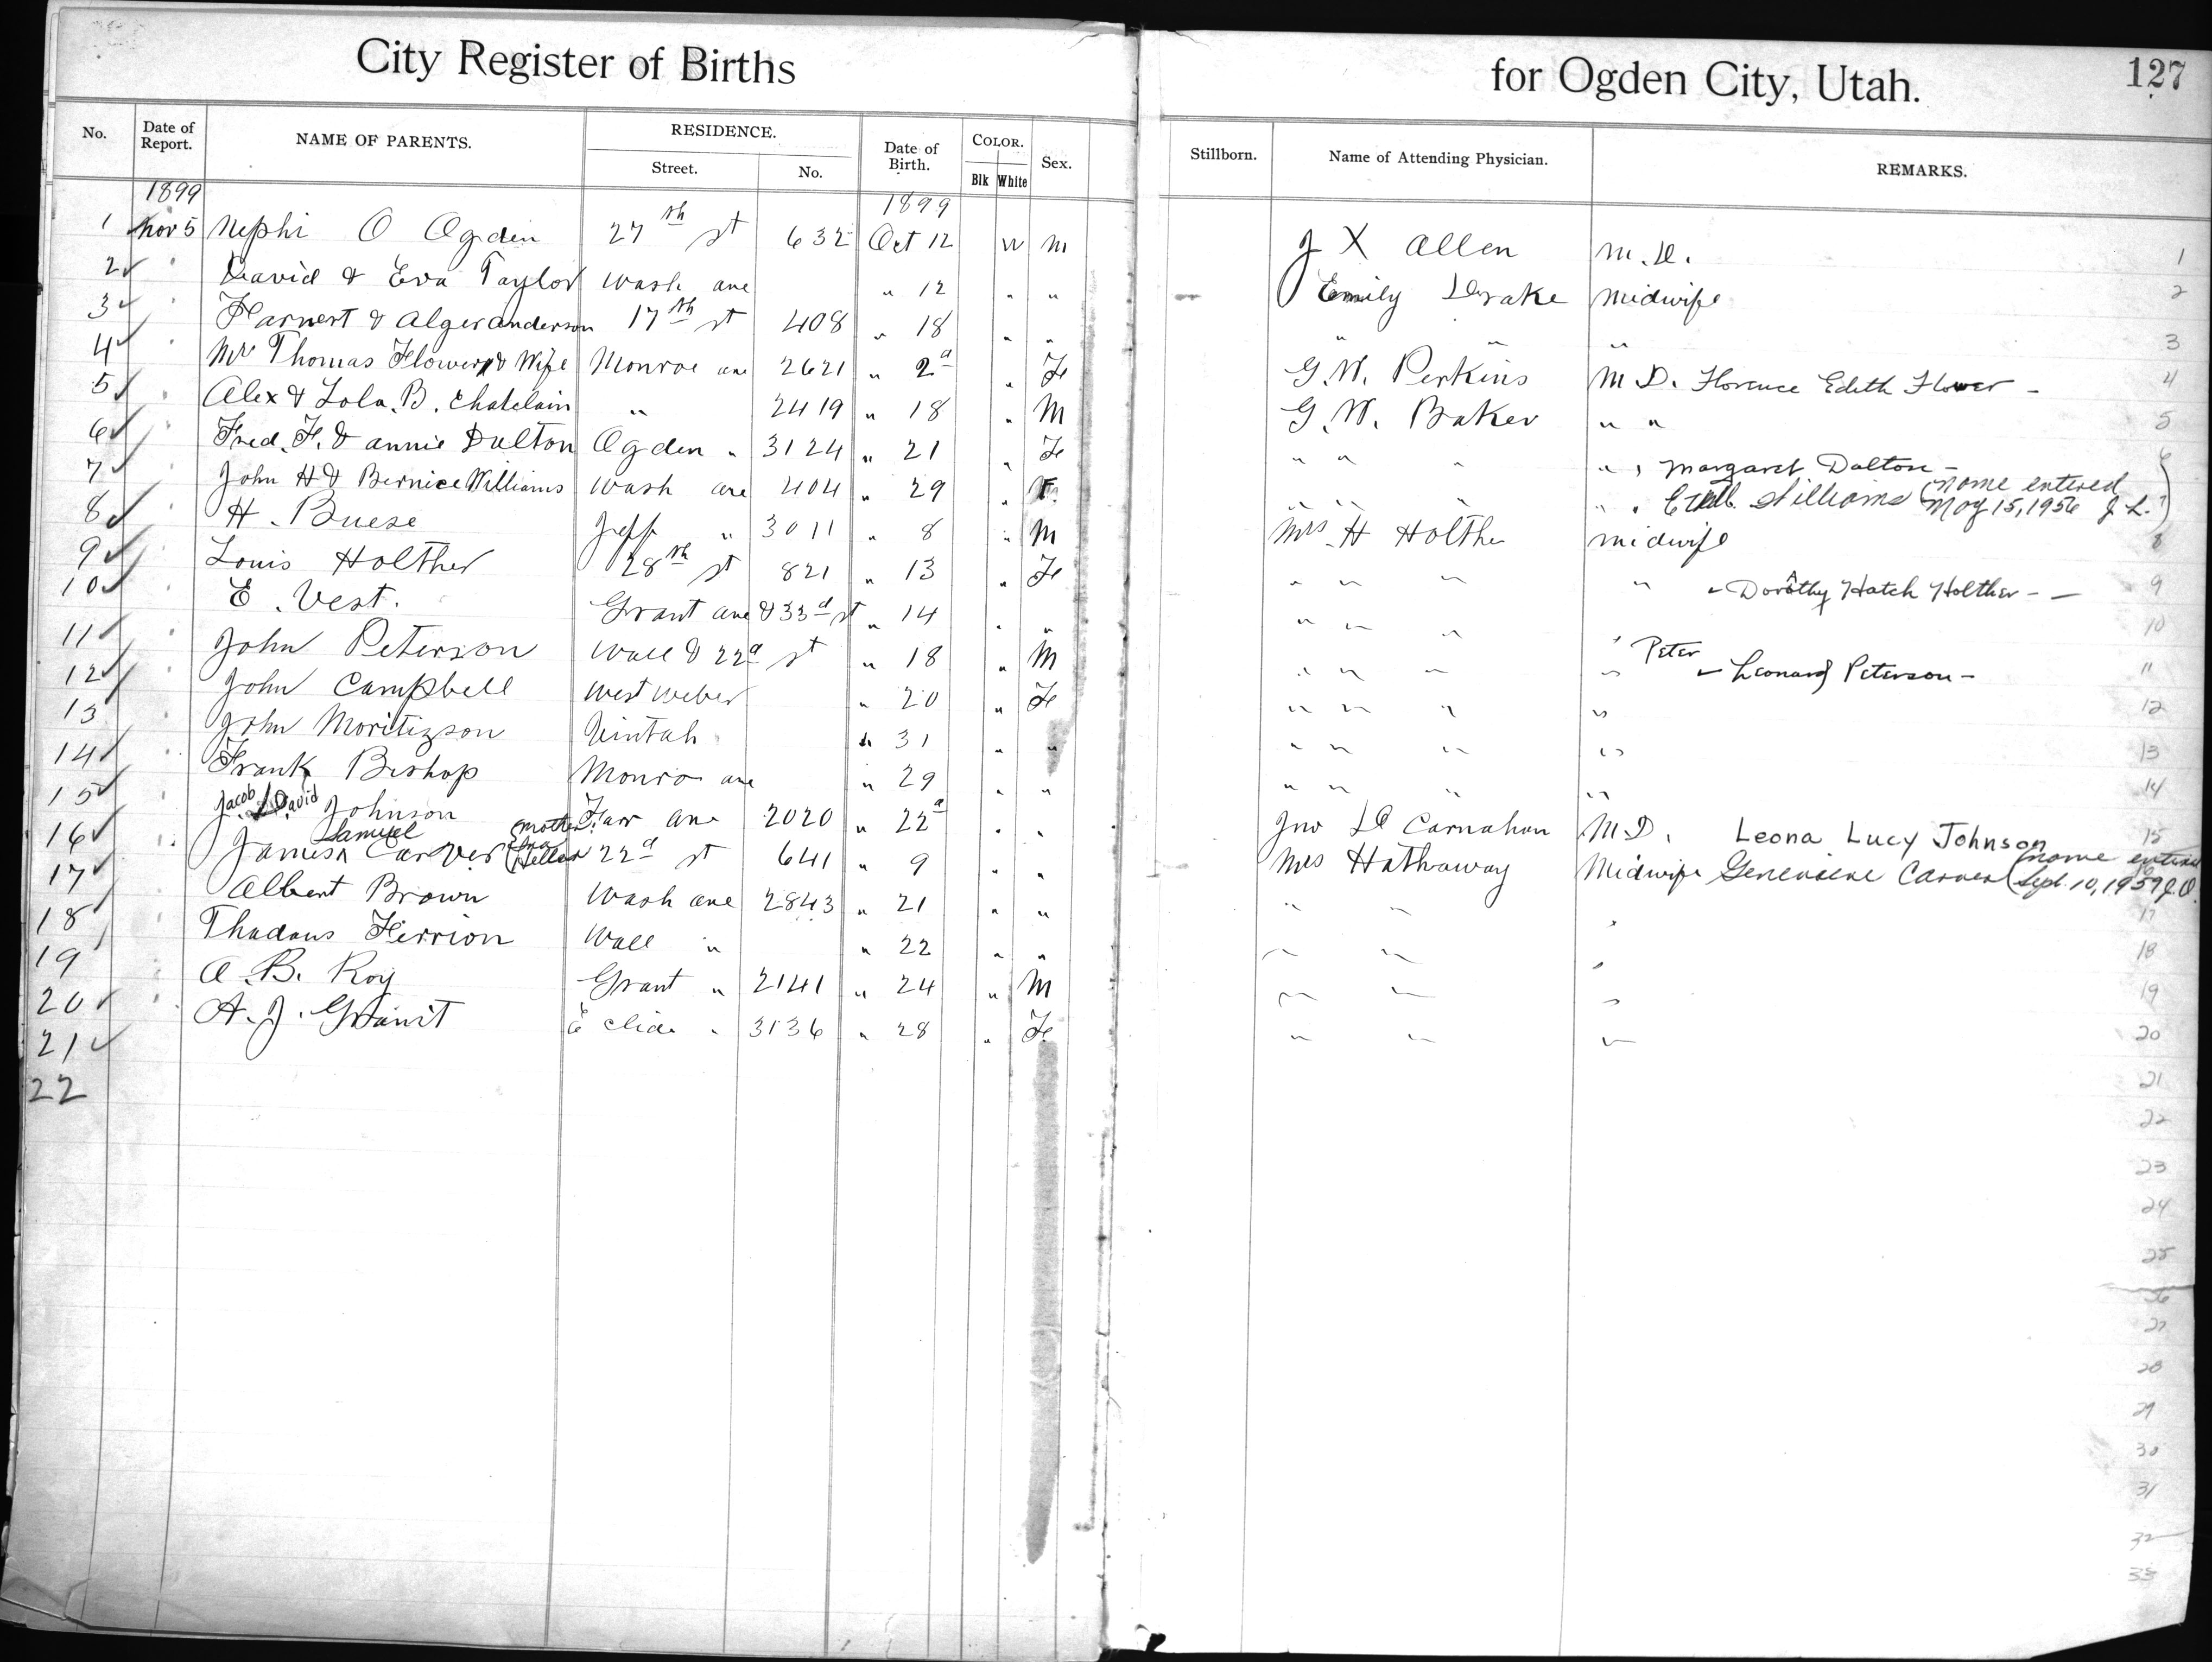 City Register of Births for Ogden City, Utah. 127
No. Date of Report. NAME OF PARENTS. RESIDENCE. Street. No. Date of Birth. COLOR. Blk White Sex. Stillborn. Name of Attending Physician. REMARKS.
1899 1899
1 Nov 5 Nephi O Ogden 27th st 632 Oct 12 W M J X Allen M.D. 1
2 ✓ " David & Eva Taylor Wash ave " 12 " " Emily Drake Midwife 2
3 ✓ " & Alger Anderson 17th st 408 " 18 " " " " " 3
4 ✓ " Mr Thomas Flower & Wife Monroe ave 2621 " 2d " Fe G.W. Perkins M.D. Florence Edith Flower - 4
5 ✓ " Alex & Lola. B. Chatelain " 2419 " 18 " M G.W. Baker " " 5
6 ✓ " Fred. F. & Annie Dalton Ogden " 3124 " 21 " Fe " " " " , Margaret Dalton - 6
7 ✓ " John H & Bernice Williams Wash ave 404 " 29 " F. " " " " " Williams (Name entered
May 15, 1956 J L.) 7
8 ✓ H. Buese Jeff " 3011 " 8 " M Mrs H Holther midwife 8
9 ✓ " Louis Holther 28th st 821 " 13 " Fe " " " " " Dorothy Hatch Holther - - 9
10 ✓ E. Vest. Grant ave & 33d st " 14 " " " " " 10
11 ✓ John Peterson Wall & 22d st " 18 " M " " " " Peter Leonard Peterson - 11
12 ✓ " John Campbell West Weber " 20 " Fe " " " " 12
13 " John Moritizson Uintah " 31 " " " " " " 13
14 ✓ " Frank Bishop Monroe ave " 29 " " " " " " 14
15 ✓ " Jacob David Johnson Farr ave 2020 " 22d " " Jno D Carnahan M.D. Leona Lucy Johnson 15
Samuel (Mother
16 ✓ James Carver 22d st 641 " 9 " " Mrs Hathaway Midwife Genevieve Carver (Name entered
Sept. 10, 1959 J.O. 16
17 ✓ Albert Brown Wash ave 2843 " 21 " " " " " 17
18 ✓ Thadaus Herrion Wall " " 22 " " " " " 18
19 A. B. Roy Grant " 2141 " 24 " M " " " 19
20 ✓ A. J. E " 3136 " 28 " Fe " " " 20
21 ✓ 21
22 22
23
24
25
26
27
28
29
30
31
32
33